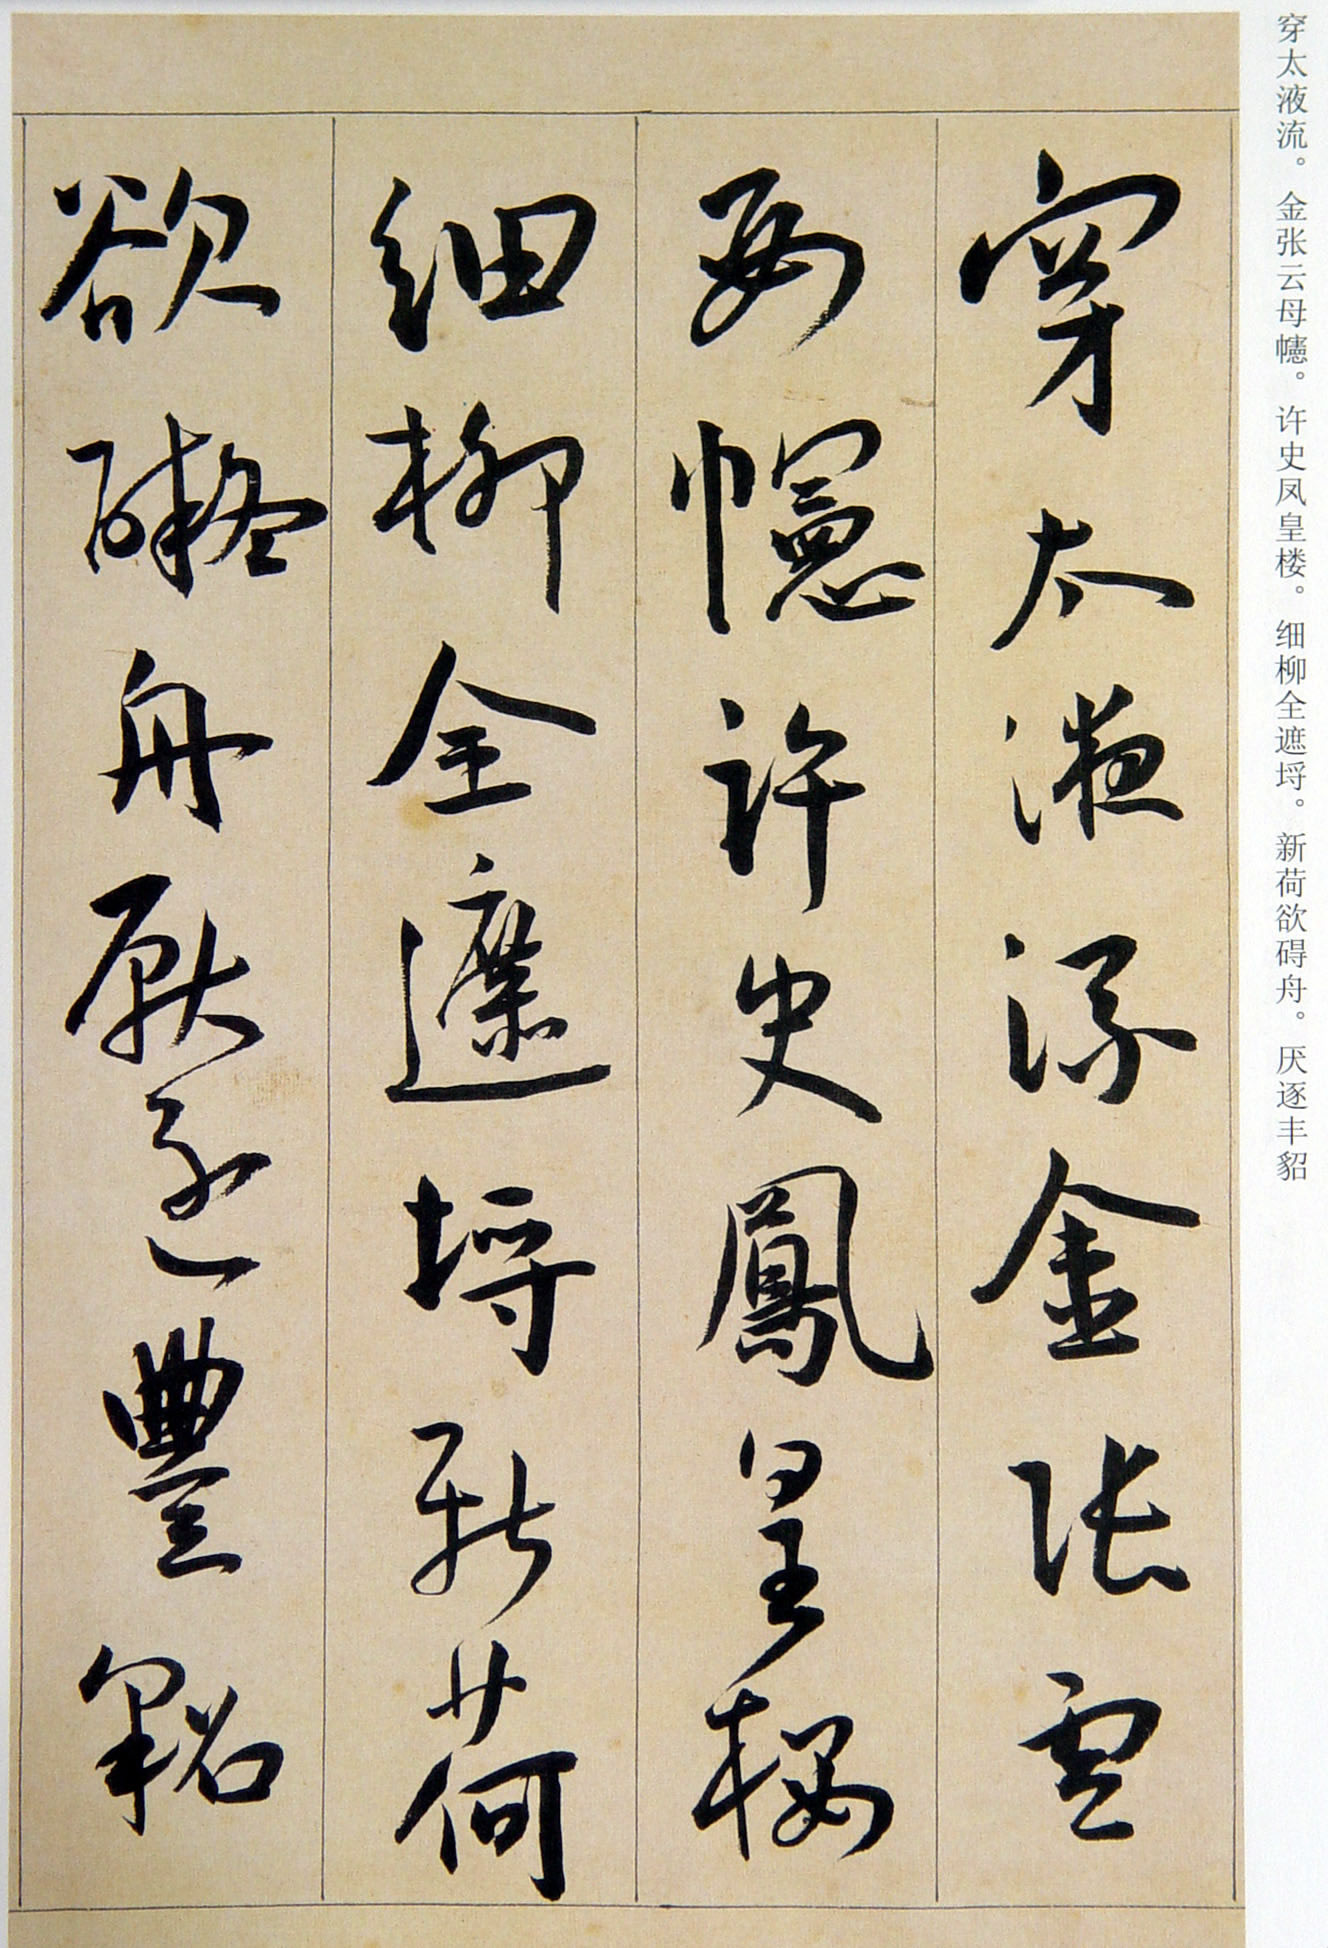 穿太液流。金张云母幰。许史凤皇楼。细柳全遮埒。新荷欲碍舟。厌逐丰貂
穿太液流金張雲
母幰許史鳳皇樓
細柳全遮埒新荷
欲礙舟厭逐豐貂